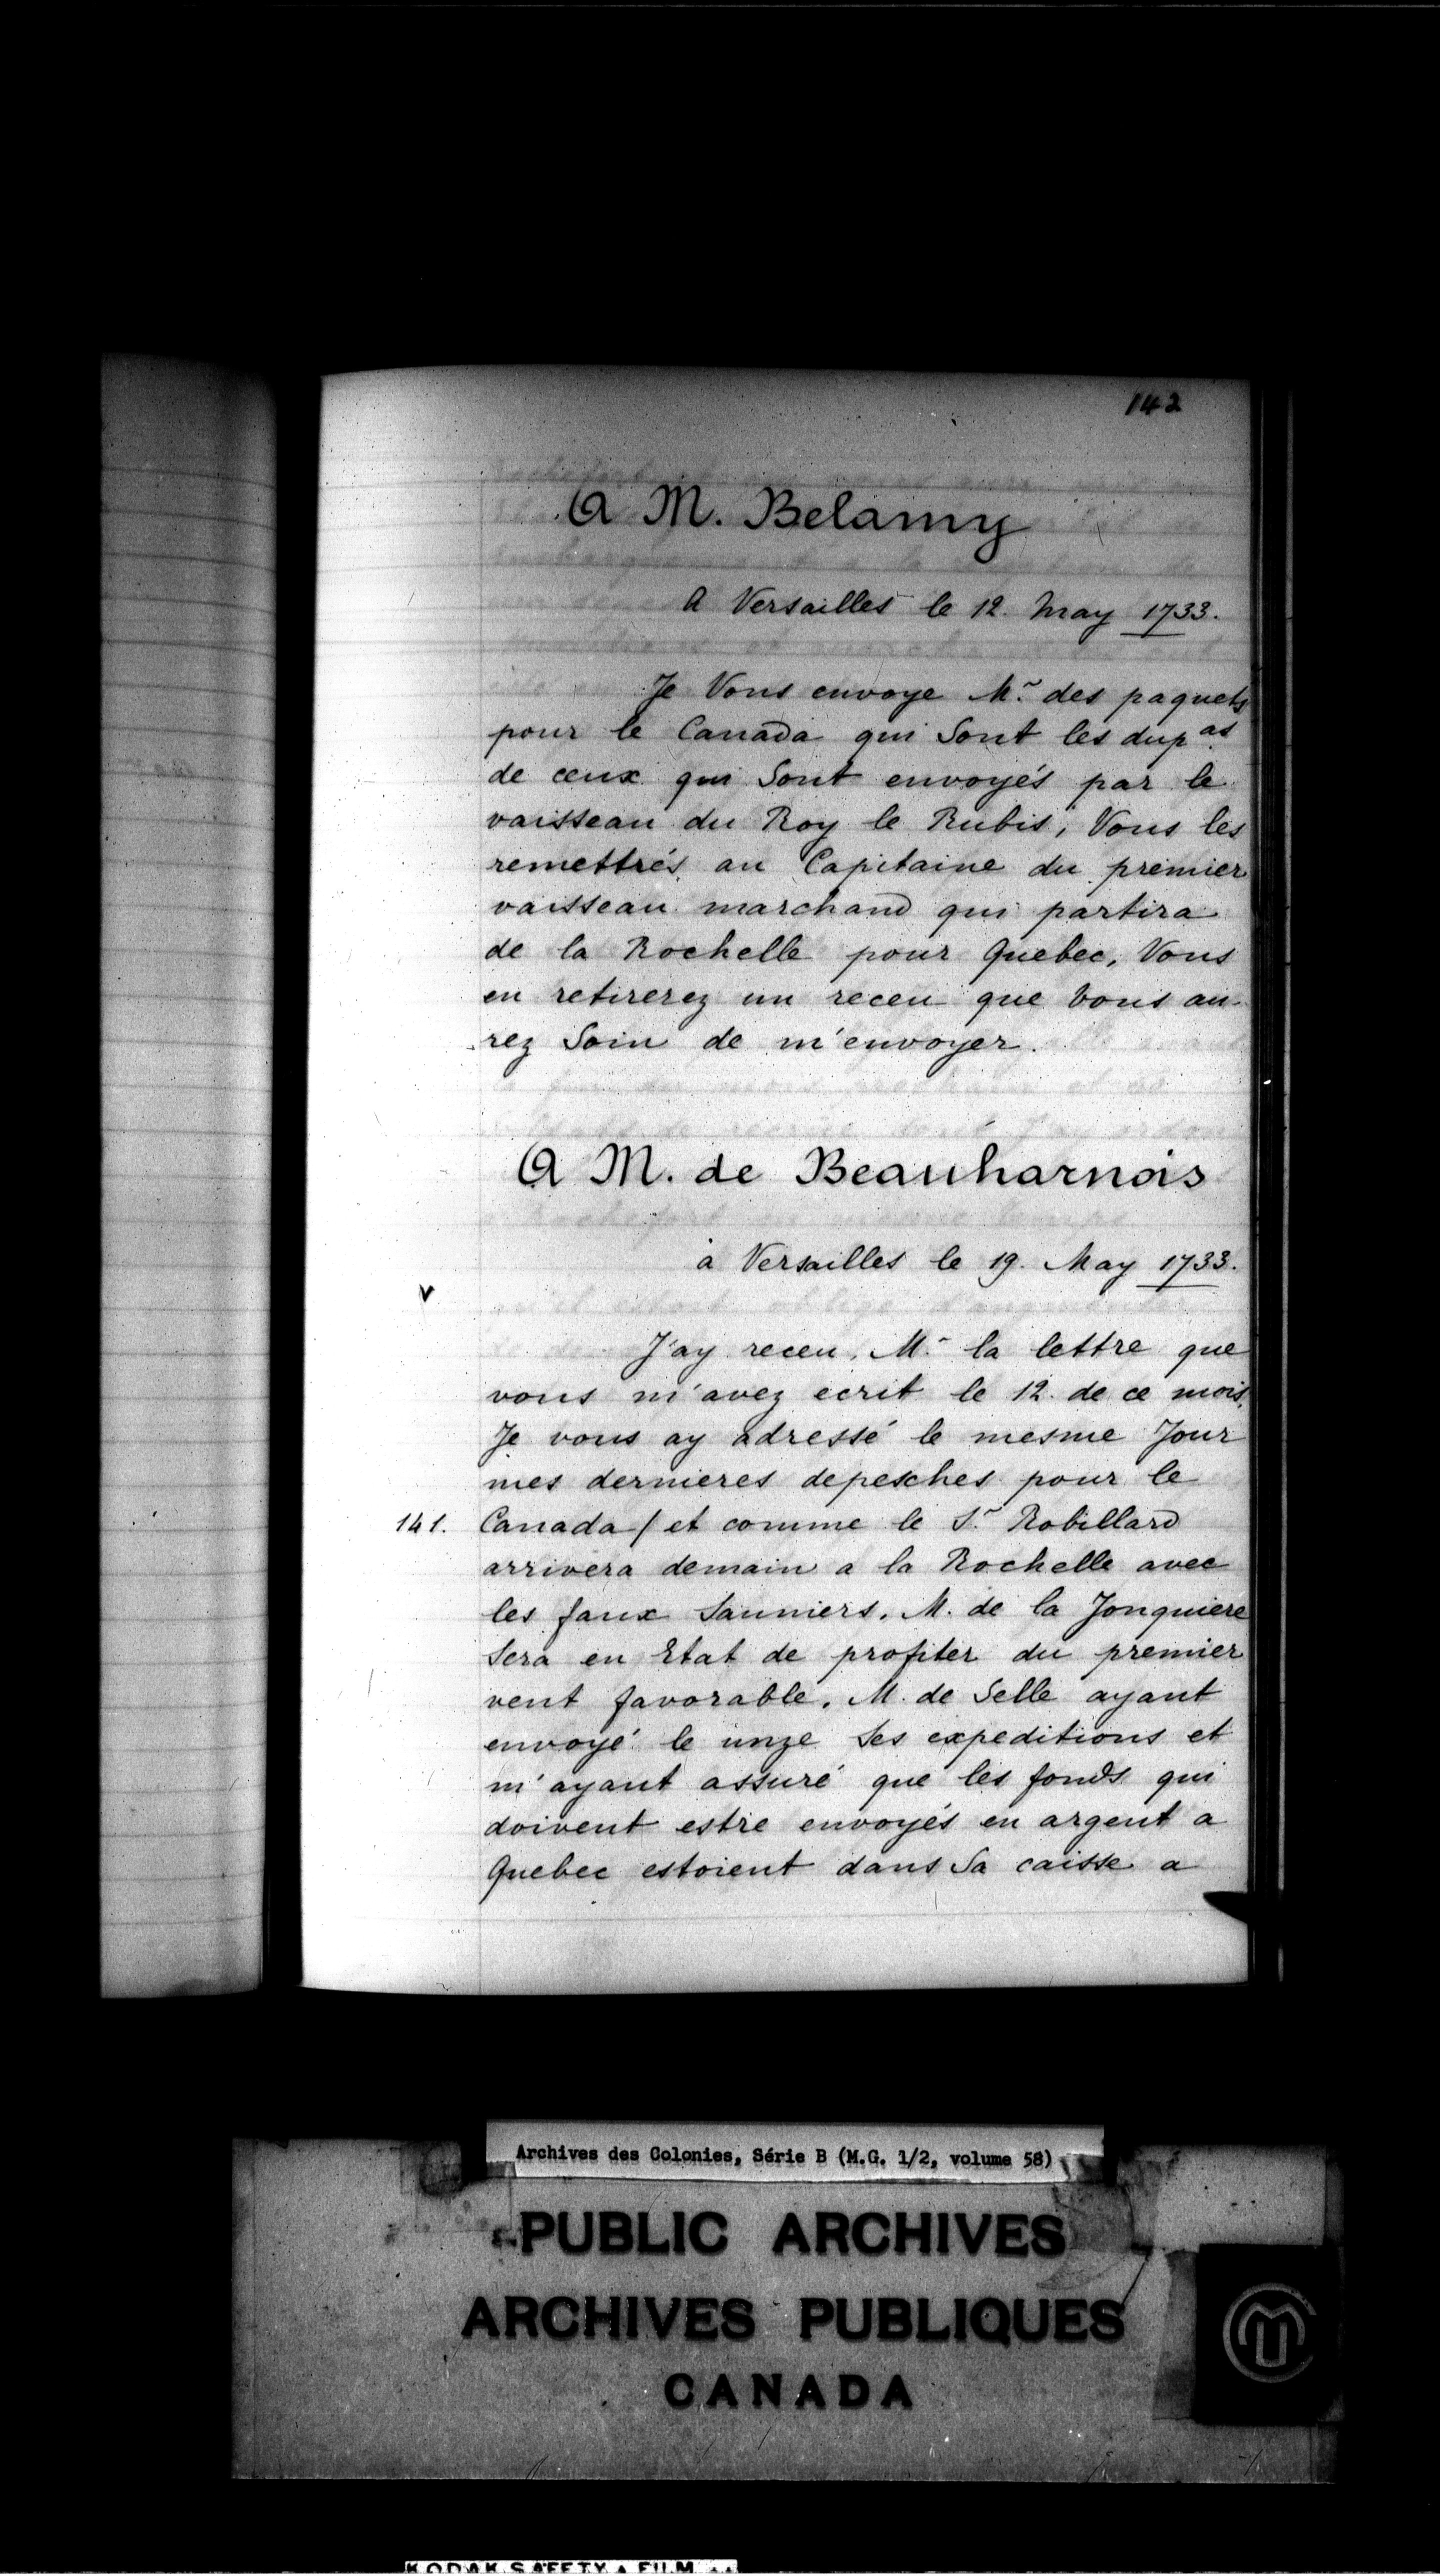 142
A M. Belamy
A Versailles le 12. May 1733.
Je Vous envoye Mr. des paquets
pour le Canada qui Sont les dupas.
de ceux qui Sont envoyés par le
vaisseau du Roy le Rubis, Vous les
remettrés au Capitaine du premier
vaisseau marchand qui partira
de la Rochelle pour Quebec, Vous
en retirerez un receu que Vous au-
rez Soin de m'envoyer.
A M. de Beauharnois
à Versailles le 19. May 1733.
v
J'ay receu, Mr. la lettre que
vous m'avez ecrit le 12. de ce mois.
Je vous ay adressé le mesme Jour
mes dernieres depesches pour le
141. Canada / et comme le Sr. Robillard
arrivera demain a la Rochelle avec
les faux Sauniers. M. de la Jonquiere
Sera en Etat de profiter du premier
vent favorable. M. de Selle ayant
envoyé le unze Ses expeditions et
m'ayant assuré que les fonds qui
doivent estre envoyés en argent a
Quebec estoient dans Sa caisse a
Archives des Colonies, Série B (M.G. 1/2, volume 58)
PUBLIC ARCHIVES
ARCHIVES PUBLIQUES
CANADA
KODAK SAFETY FILM